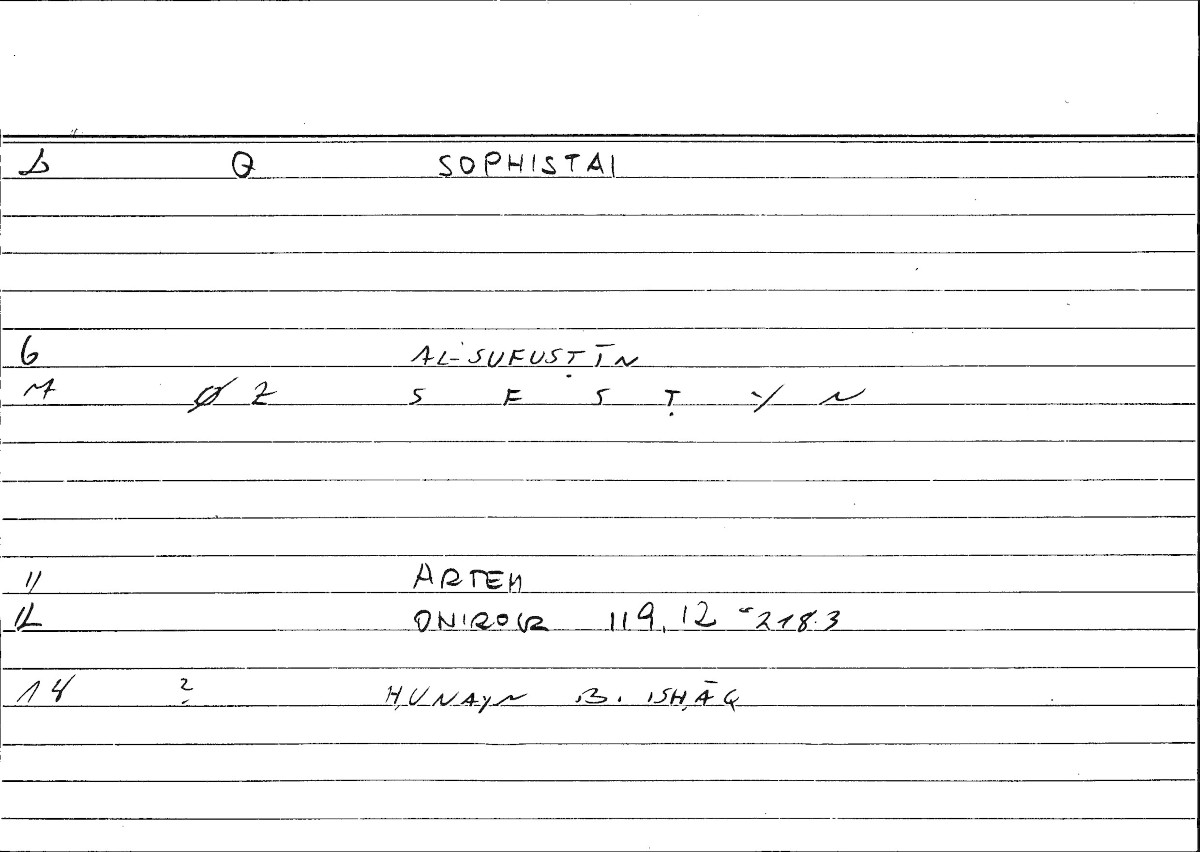 Q SOPHISTAI
6 AL-SUFUSṬĪN
Ø Z S F S Ṭ Y N
11 ARTEM
12 ONIROCR 119,12 = 218.3
14 ? ḤUNAYN B. ISḤĀQ